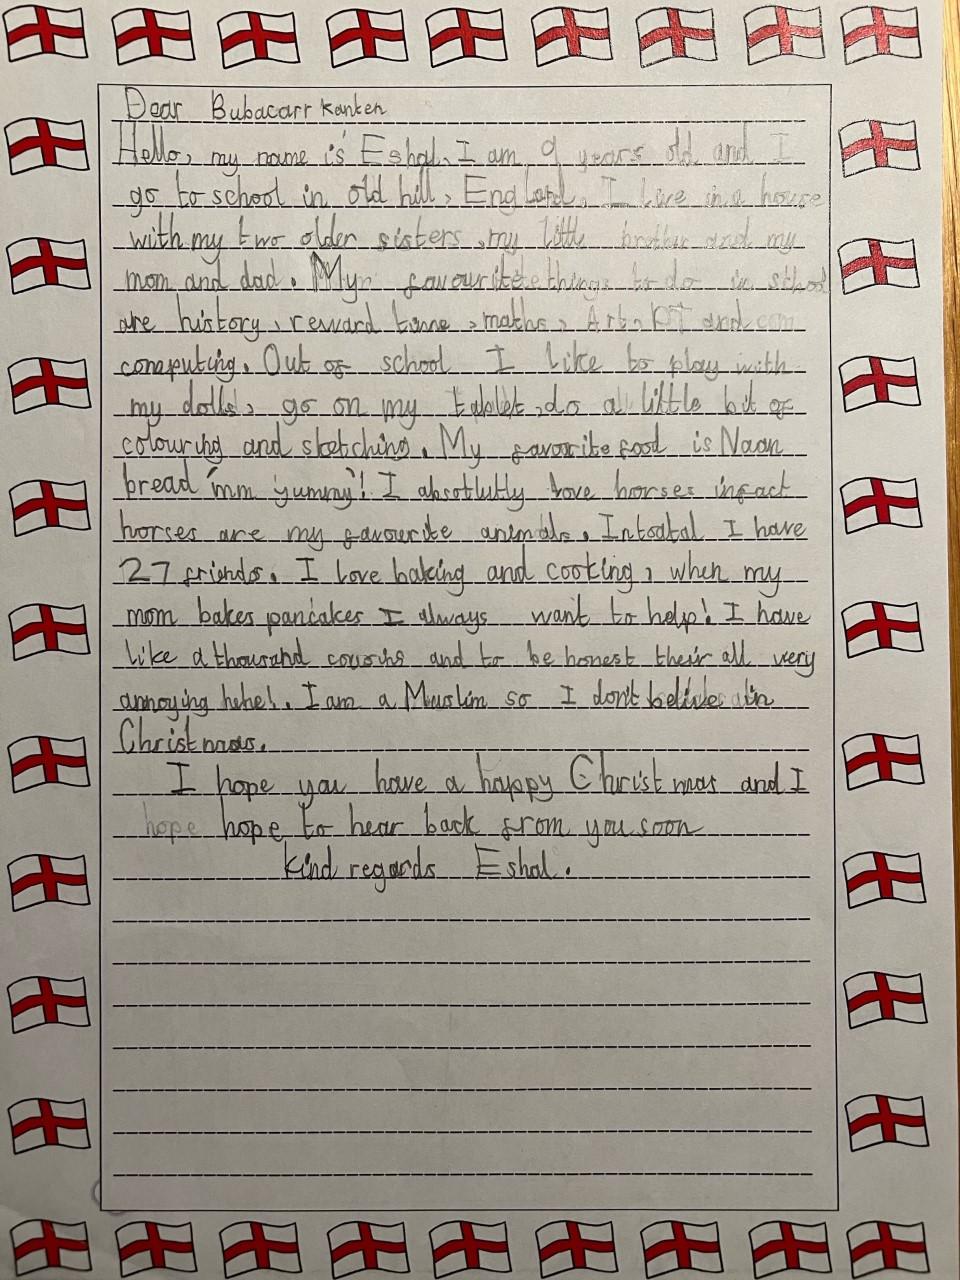 Dear Bubacarr Kanten
Hello, my name is Eshal. I am 9 years old and I
go to school in old hill, England. I live in a house
with my two older sisters, my little brother and my
mom and dad. My favourite things to do in school
are history, reward time, maths, Art, and com
computing. Out of school I like to play with
my dolls, go on my tablet, do a little bit of
colouring and sketching. My favorite food is Naan
bread 'mm yummy'! I absoltutly love horses infact
horses are my favourite animals. Intoatal I have
27 friends. I love baking and cooking, when my
mom bakes pancakes I always want to help! I have
like a thousand cousins and to be honest their all very
annoying hehe!. I am a Muslim so I don't belive in
Christmas.
I hope you have a happy Christmas and I
hope hope to hear back from you soon
kind regards Eshal.